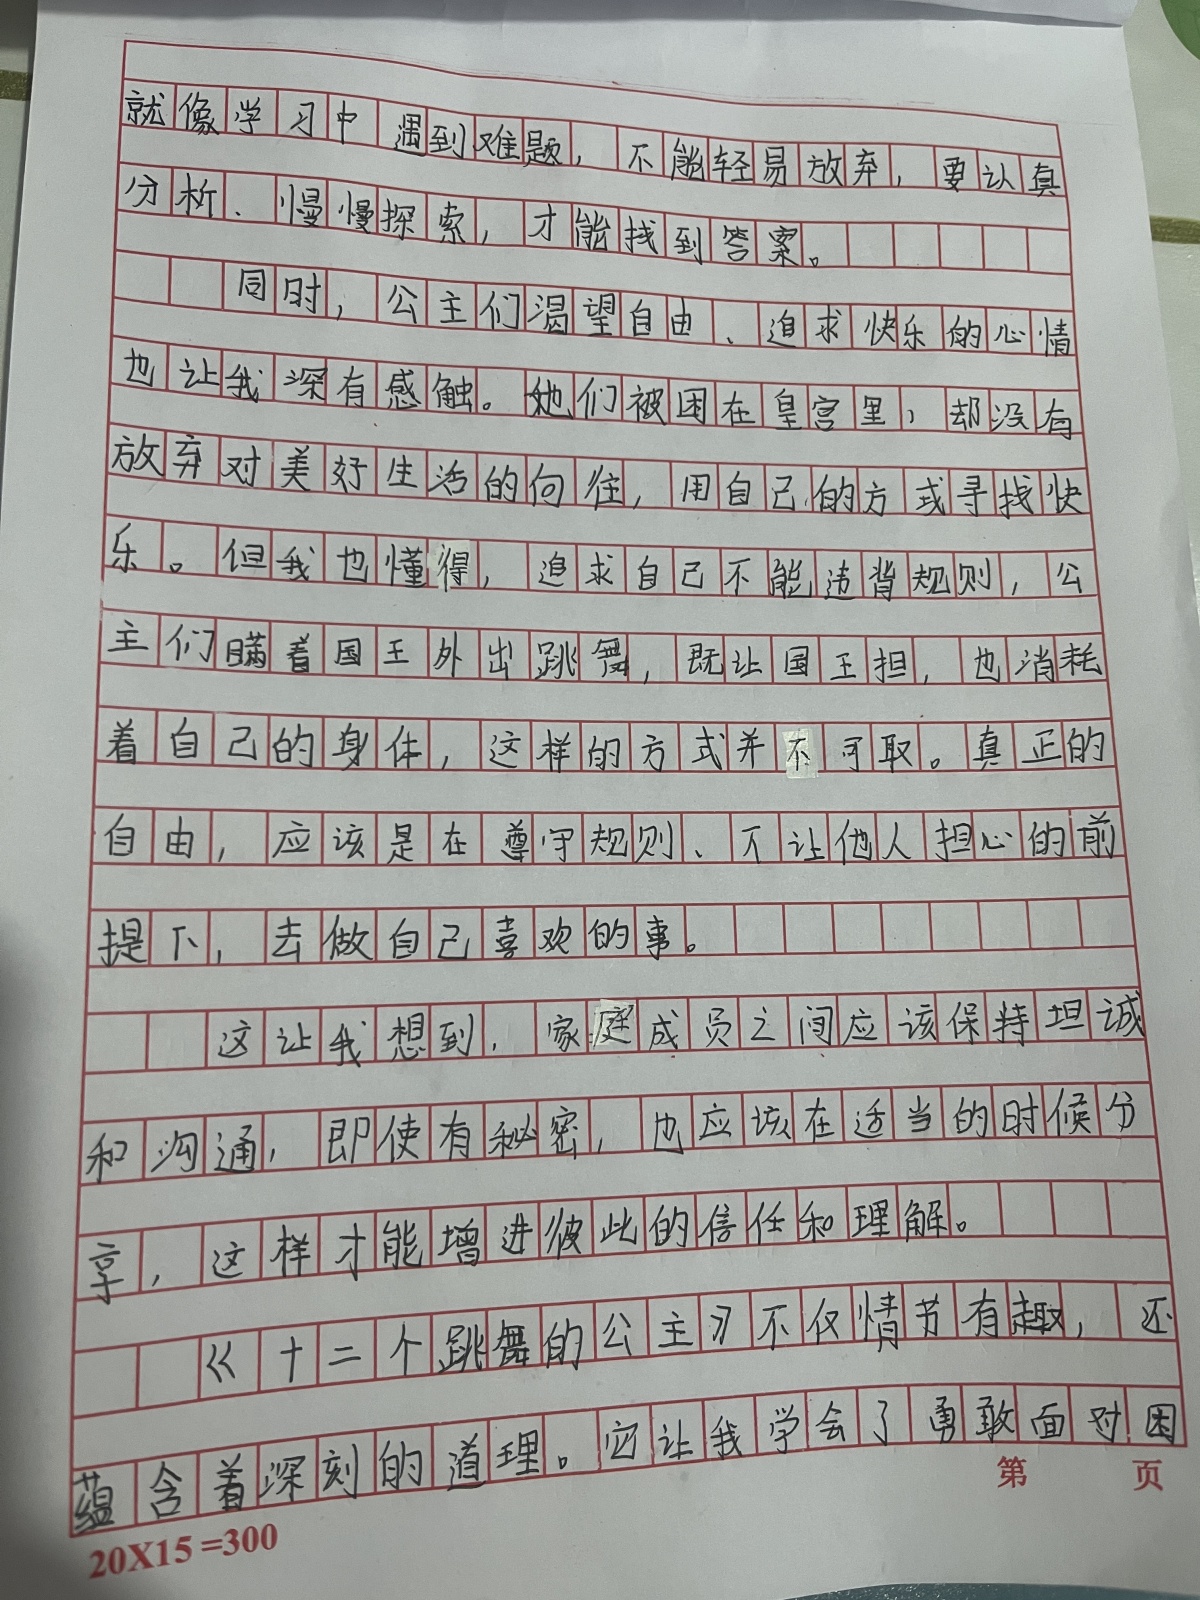 就像学习中遇到难题，不能轻易放弃，要认真
分析、慢慢探索，才能找到答案。
同时，公主们渴望自由、追求快乐的心情
也让我深有感触。她们被困在皇宫里，却没有
放弃对美好生活的向往，用自己的方式寻找快
乐。但我也懂得，追求自己不能违背规则，公
主们瞒着国王外出跳舞，既让国王担，也消耗
着自己的身体，这样的方式并不可取。真正的
自由，应该是在遵守规则、不让他人担心的前
提下，去做自己喜欢的事。
这让我想到，家庭成员之间应该保持坦诚
和沟通，即使有秘密，也应该在适当的时候分
享，这样才能增进彼此的信任和理解。
《十二个跳舞的公主》不仅情节有趣，还
蕴含着深刻的道理。它让我学会了勇敢面对困
第 页
20X15=300